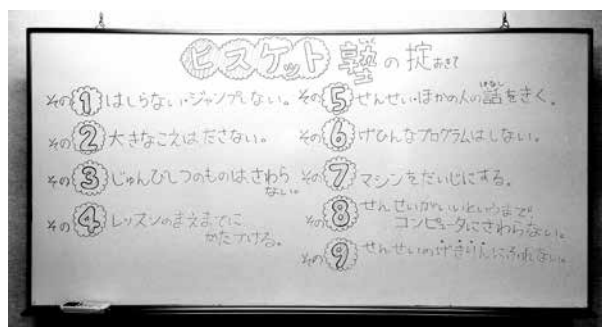 ビスケット塾の掟おきて
その1はしらない・ジャンプしない。
その2大きなこえはださない。
その3じゅんびしつのものは、さわら
ない。
その4レッスンのまえまでに
かたづける。
その5せんせい・ほかの人の話をきく。
はなし
その6げひんなプログラムはしない。
その7マシンをだいじにする。
その8せんせいがいいというまで
コンピュータにさわらない。
その9せんせいのげきりんにふれない。